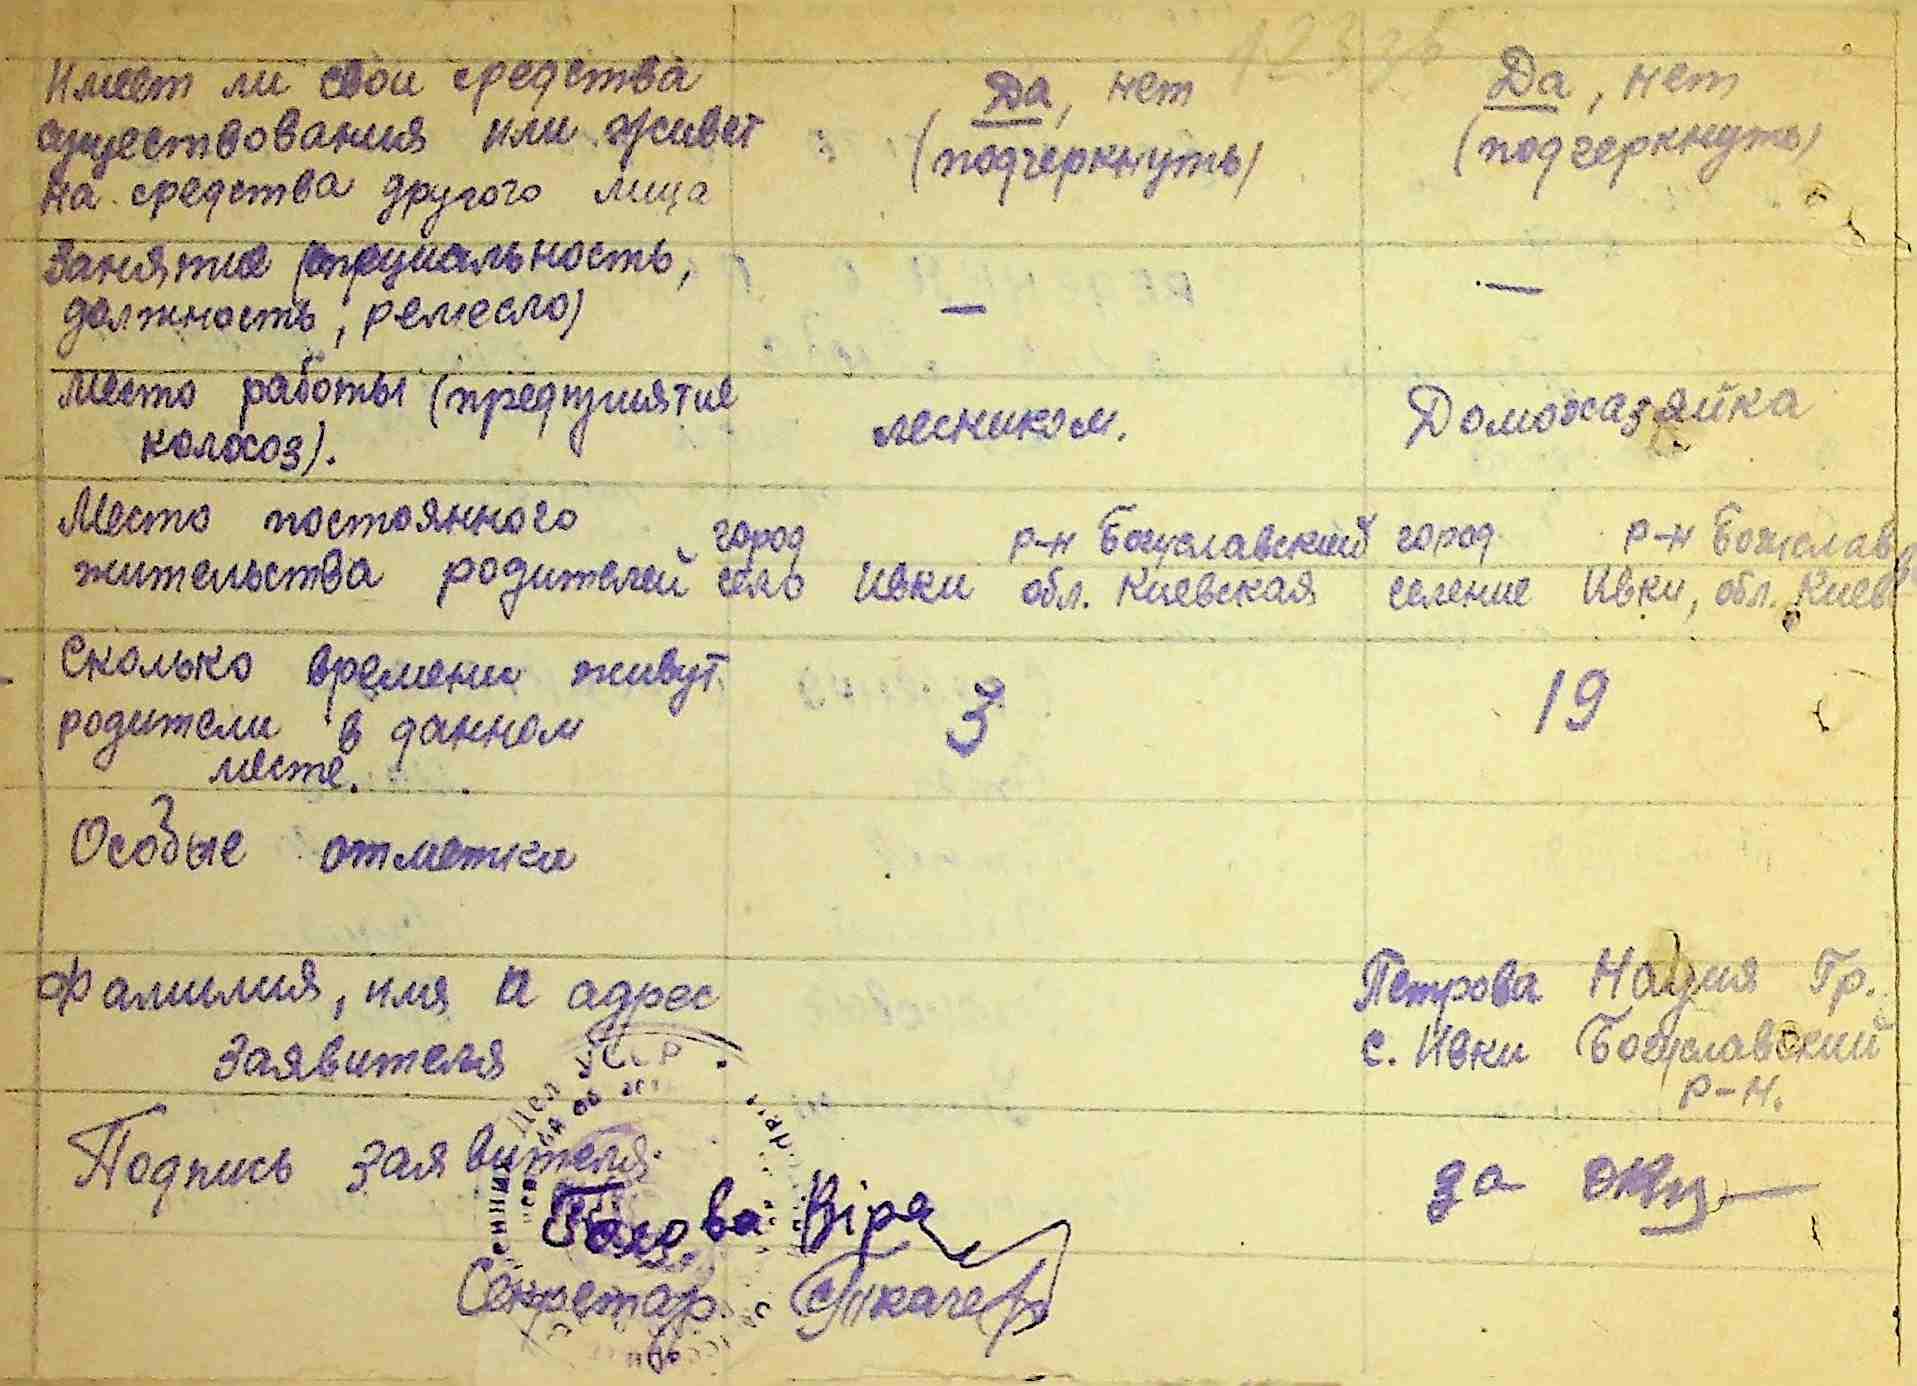 Имеет ли свои средства
существования или живет
на средства другого лица
Да, нет
(подчеркнуть)
Да, нет
(подчеркнуть)
Занятие (специальность,
должность, ремесло)
—
—
Место работы (предприятие
колхоз).
лесником.
Домохазяйка
Место постоянного
жительства родителей
город р-н Богуславский
село Ивки обл. Киевская
город р-н Богуслав
селение Ивки, обл. Киев
Сколько времени живут
родители в данном
месте.
3
19
Особые отметки
Фамилия, имя и адрес
заявителя
Петрова Надия Гр.
с. Ивки Богуславский
р-н.
Подпись заявителя.
за
УССР
Голова Віра
Секретар Ткачев